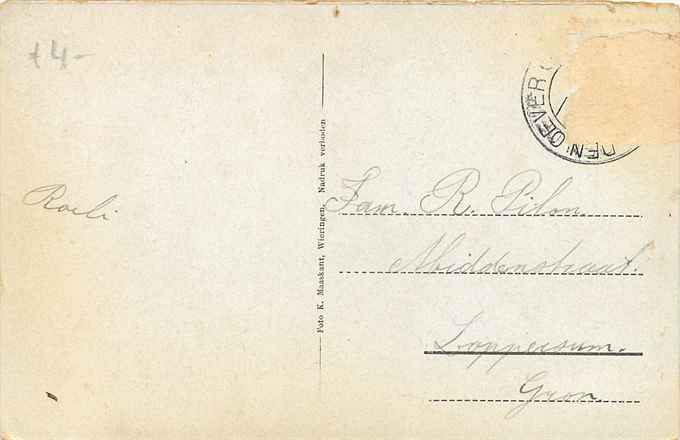 f 4-
DEN OEVER
Roeli
Foto K. Maaskant, Wieringen, Nadruk verboden
Fam. R. Pilon.
Middenstraat.
Loppersum.
Gron.